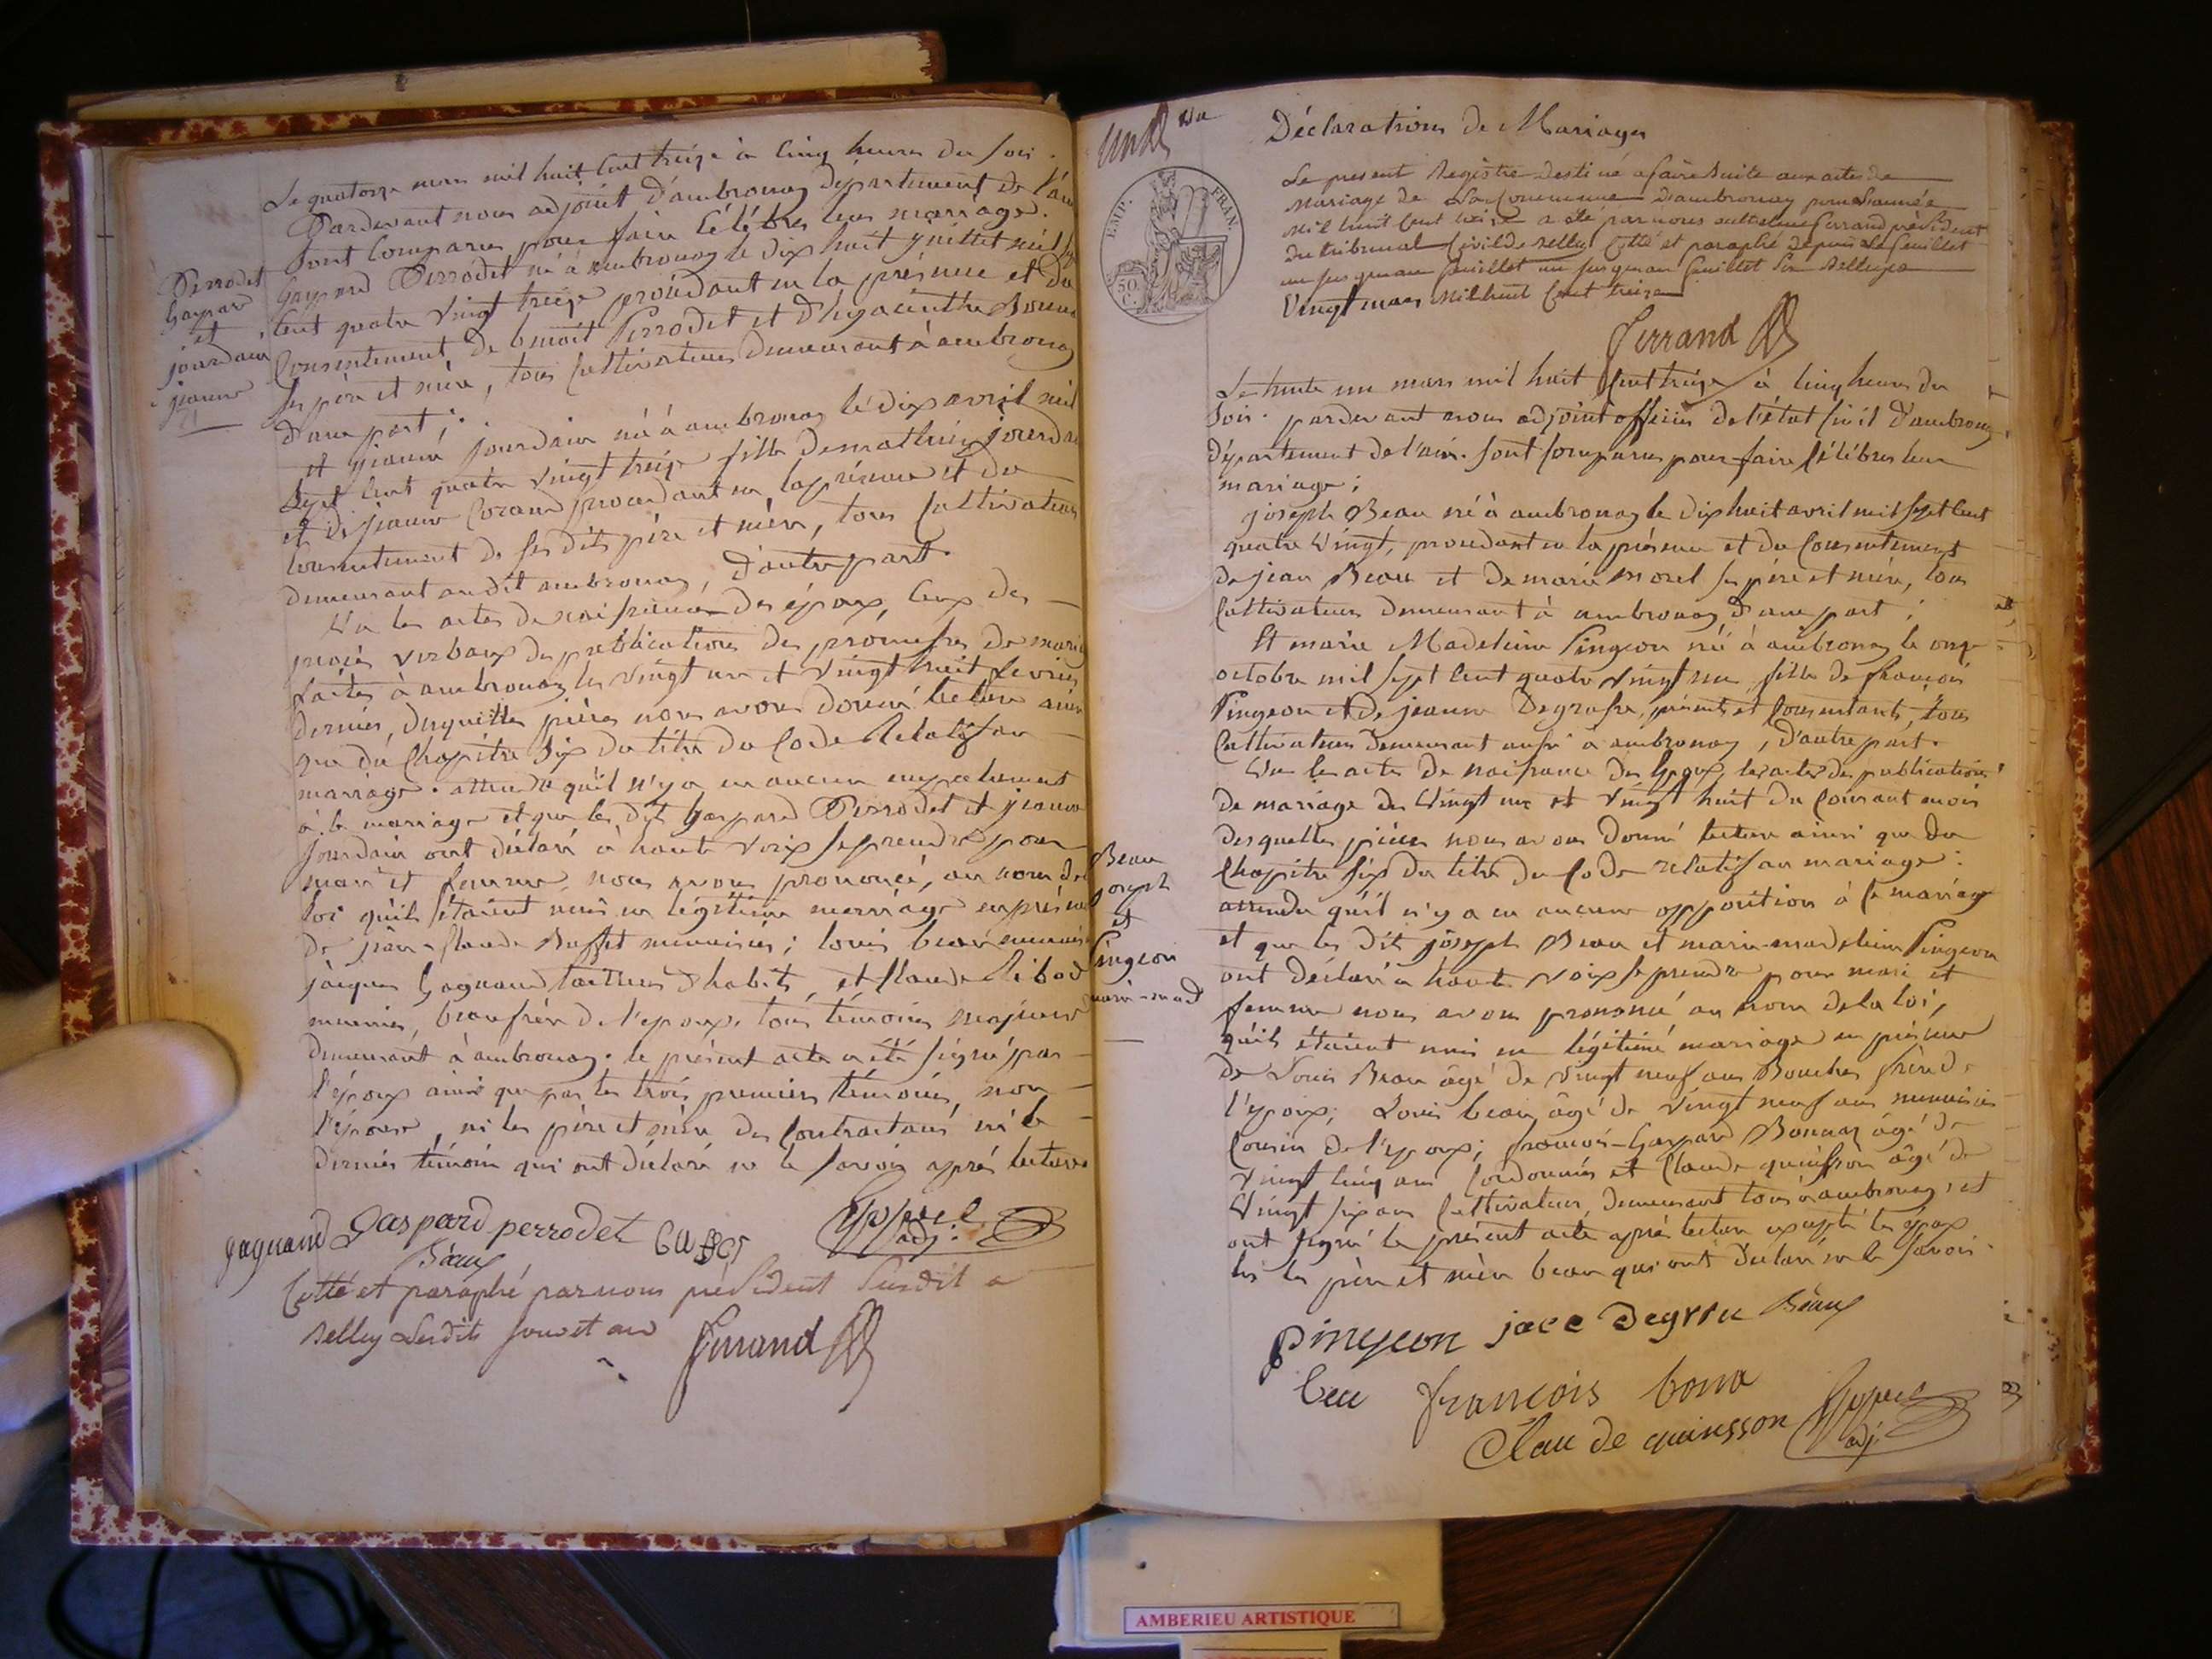 Le quatorze mars mil huit cent treize à cinq heures du soir.
Pardevant nous adjoint d'ambronay département de l'ain
sont comparus pour faire célébrer leur mariage.
Perrodet
Gaspard
et
jourdain
jeanne
Gaspard Perrodet né à ambronay le dix huit juillet mil sept
cent quatre vingt treize procédant en la présence et du
Consentement de benoit Perrodet et d'hyacinthe Bonna
ses père et mère, tous Cultivateurs demeurant à ambronay
d'une part;
et jeanne jourdain né à ambronay le dix avril mil
Sept cent quatre vingt treize fille de mathieu jourdain
et de jeanne procedant en la présence et du
Consentement de ses dits père et mère, tous Cultivateurs
demeurant au dit ambronay, d'autre part.
Vu les actes de naissance des époux, ceux des
procès verbaux de publications des promesses de mariage
faites à ambronay les vingt un et vingt huit fevrier
dernier, desquelles pièces nous avons donné lecture ainsi
que du Chapitre Six du titre du Code Relatif au
mariage. attendu qu'il n'y a eu aucun empechement
à ce mariage et que les dit Gaspard Perrodet et jeanne
jourdain ont déclaré à haute voix se prendre pour
mari et femme, nous avons prononcé, au nom de la
loi qu'ils étaient unis en légitime mariage en présence
de jean-Claude Buffet menuisier; louis beau menuisier
jacques Gagnand tailleur d'habits, et Claude Ribod
meunier, beau frère de l'epoux, tous témoins majeurs
demeurant à ambronay. le présent acte a été signé par
l'époux ainsi que par les trois premiers témoins, non
l'épouse, ni les père et mère des Contractans ni le
dernier témoin qui ont déclaré ne le savoir après lecture
gagnand Gaspard perrodet
Béaux
adj.
Cotté et paraphé par nous président susdit a
Belley Lesdits jour et an Ferrand
Déclarations de Mariages
EMP. FRAN.
50 C.
Le present Registre destiné a faire Suite aux actes de
Mariage de La Commune d'ambronay pour L'année
Mil huit Cent treize a été par nous anthelme ferrand président
du tribunal Civil de Belley Cotté et paraphé depuis Le feuillet
un jusqu'au feuillet un jusqu'au feuillet Six Belley ce
Vingt mars Mil huit Cent treize
Ferrand
Le trente un mars mil huit Cent treize à cinq heures du
soir. pardevant nous adjoint officier de l'état Civil d'ambronay
département de l'ain. sont comparus pour faire célébrer leur
mariage;
joseph Beau né à ambronay le dix huit avril mil sept cent
quatre vingt, procedant en la présence et du Consentement
de jean Beau et de marie morel ses père et mère, tous
Cultivateurs demeurant à ambronay d'une part;
Et marie Madeleine Pingeon né à ambronay le onze
octobre mil sept cent quatre vingt un fille de françois
Pingeon et de jeanne Degrasse, présents et Consentants, tous
Cultivateurs demeurant aussi à ambronay, d'autre part.
Vu les actes de naissance des Epoux, les actes de publications
de mariage des vingt un et vingt huit du courant mois
desquelles pièces nous avons donné lecture ainsi que du
Chapitre six du titre du Code relatif au mariage:
Beau
joseph
et
Pingeon
marie-mad
attendu qu'il n'y a eu aucune opposition à ce mariage
et que les dit joseph Beau et marie-madeleine Pingeon
ont déclaré à haute voix se prendre pour mari et
femme nous avons prononcé au nom de la loi,
qu'ils étaient unis en légitime mariage en présence
de Louis Beau âgé de vingt neuf ans Boucher frère de
l'epoux; Louis beau âgé de vingt neuf ans menuisier
Cousin de l'epoux; françois-Gaspard Bonnaz âgé de
vingt cinq ans Cordonnier et Claude quinsson âgé de
Vingt six ans Cultivateur, demeurant tous à ambronay, et
ont signé le présent acte après lecture excepté les époux
les père et mère beau qui ont déclaré ne le savoir.
pingeon Béaux
beu françois bona
Claude quinsson adj.
AMBERIEU ARTISTIQUE